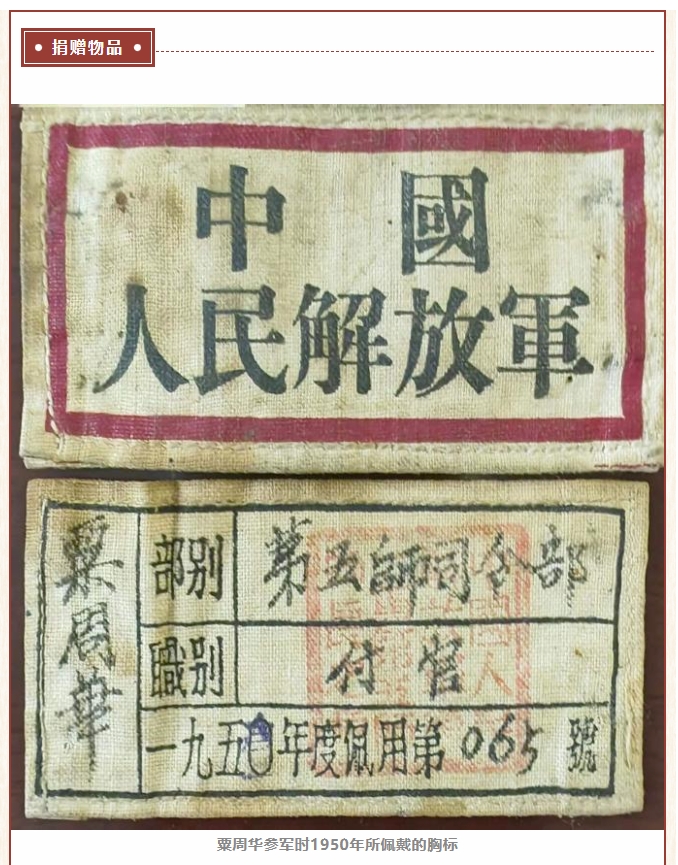 捐赠物品
中國
人民解放軍
粟周華
部别 第五師司令部
職别 付官
一九五0年度佩用第065號
粟周华参军时1950年所佩戴的胸标